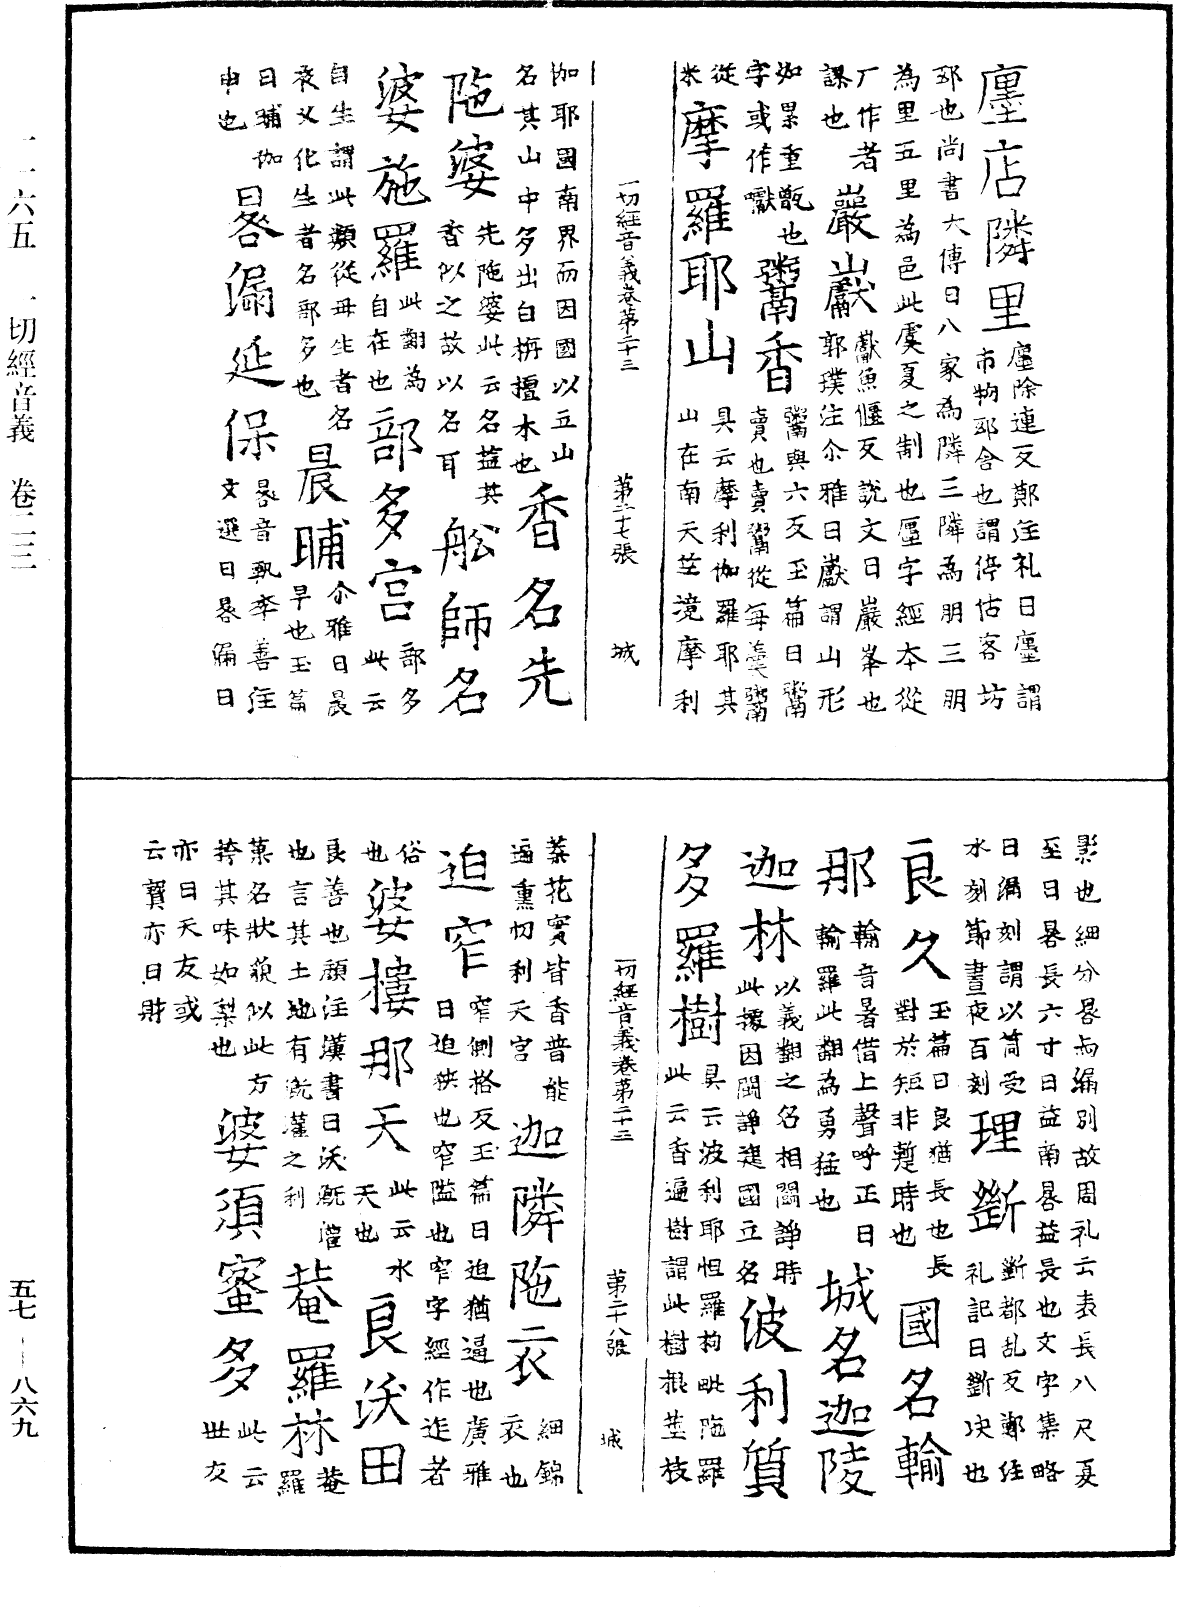 廛店隣里廛除連反鄭注礼曰廛謂
市物邸舍也謂停估客坊
邸也尚書大傳曰八家為隣三隣為朋三朋
為里五里為邑此虞夏之制也廛字經本從
厂作者巖巘巘魚偃反說文曰巖峯也
謀也郭璞注尒雅曰巘謂山形
如累重甑也鬻香鬻與六反玉篇曰鬻
字或作巘賣也賣鬻從每羹鬻
從米摩羅耶山具云摩利伽羅耶其
山在南天莖境摩利
一切經音義卷第二十三 第二十七張 城
伽耶國南界而因國以立山
名其山中多出白栴擅木也香名先
陁婆先陁婆此云名葢其
香似之故以名耳舩師名
婆施羅此翻為
自在也部多宮部多
此云
自生謂此類從母生者名
夜叉化生者名部多也晨晡尒雅曰晨
早也玉篇
曰晡伽
申也晷漏延保晷音軌李善注
文選曰晷漏日
影也細分晷而編別故周礼云表長八尺夏
至日晷長六寸日益南晷益長也文字集略
曰漏刻謂以筒受
水刻節晝夜百刻理斷斷都乱反鄭注
礼記曰斷决也
良久玉篇曰良猶長也長
對於短非蹔時也國名輸
那輸音暑借上聲呼正曰
輸羅此翻為勇猛也城名迦陵
迦林以義翻之名相鬪諍時
此援因鬪諍建國立名波利質
多羅樹具云波利耶怛羅拘毗陁羅
此云香遍樹謂此樹根莖枝
一切經音義卷第二十三 第二十八張 城
葉花實皆香普能
遍熏忉利天宮迦隣陁衣細錦
衣也
迫窄窄側格反玉篇曰迫猶逼也廣雅
曰迫狹也窄隘也窄字經作迮者
俗也婆樓那天此云水
天也良沃田
良善也顔注漢書曰沃漑灌
也言其土地有漑灌之利菴羅林菴
羅
菓名狀藐似此方
㨵其味如梨也婆須蜜多此云
世友
亦曰天友或
云寶亦曰財
一一六五 一切經音義 卷二三
五七—八六九